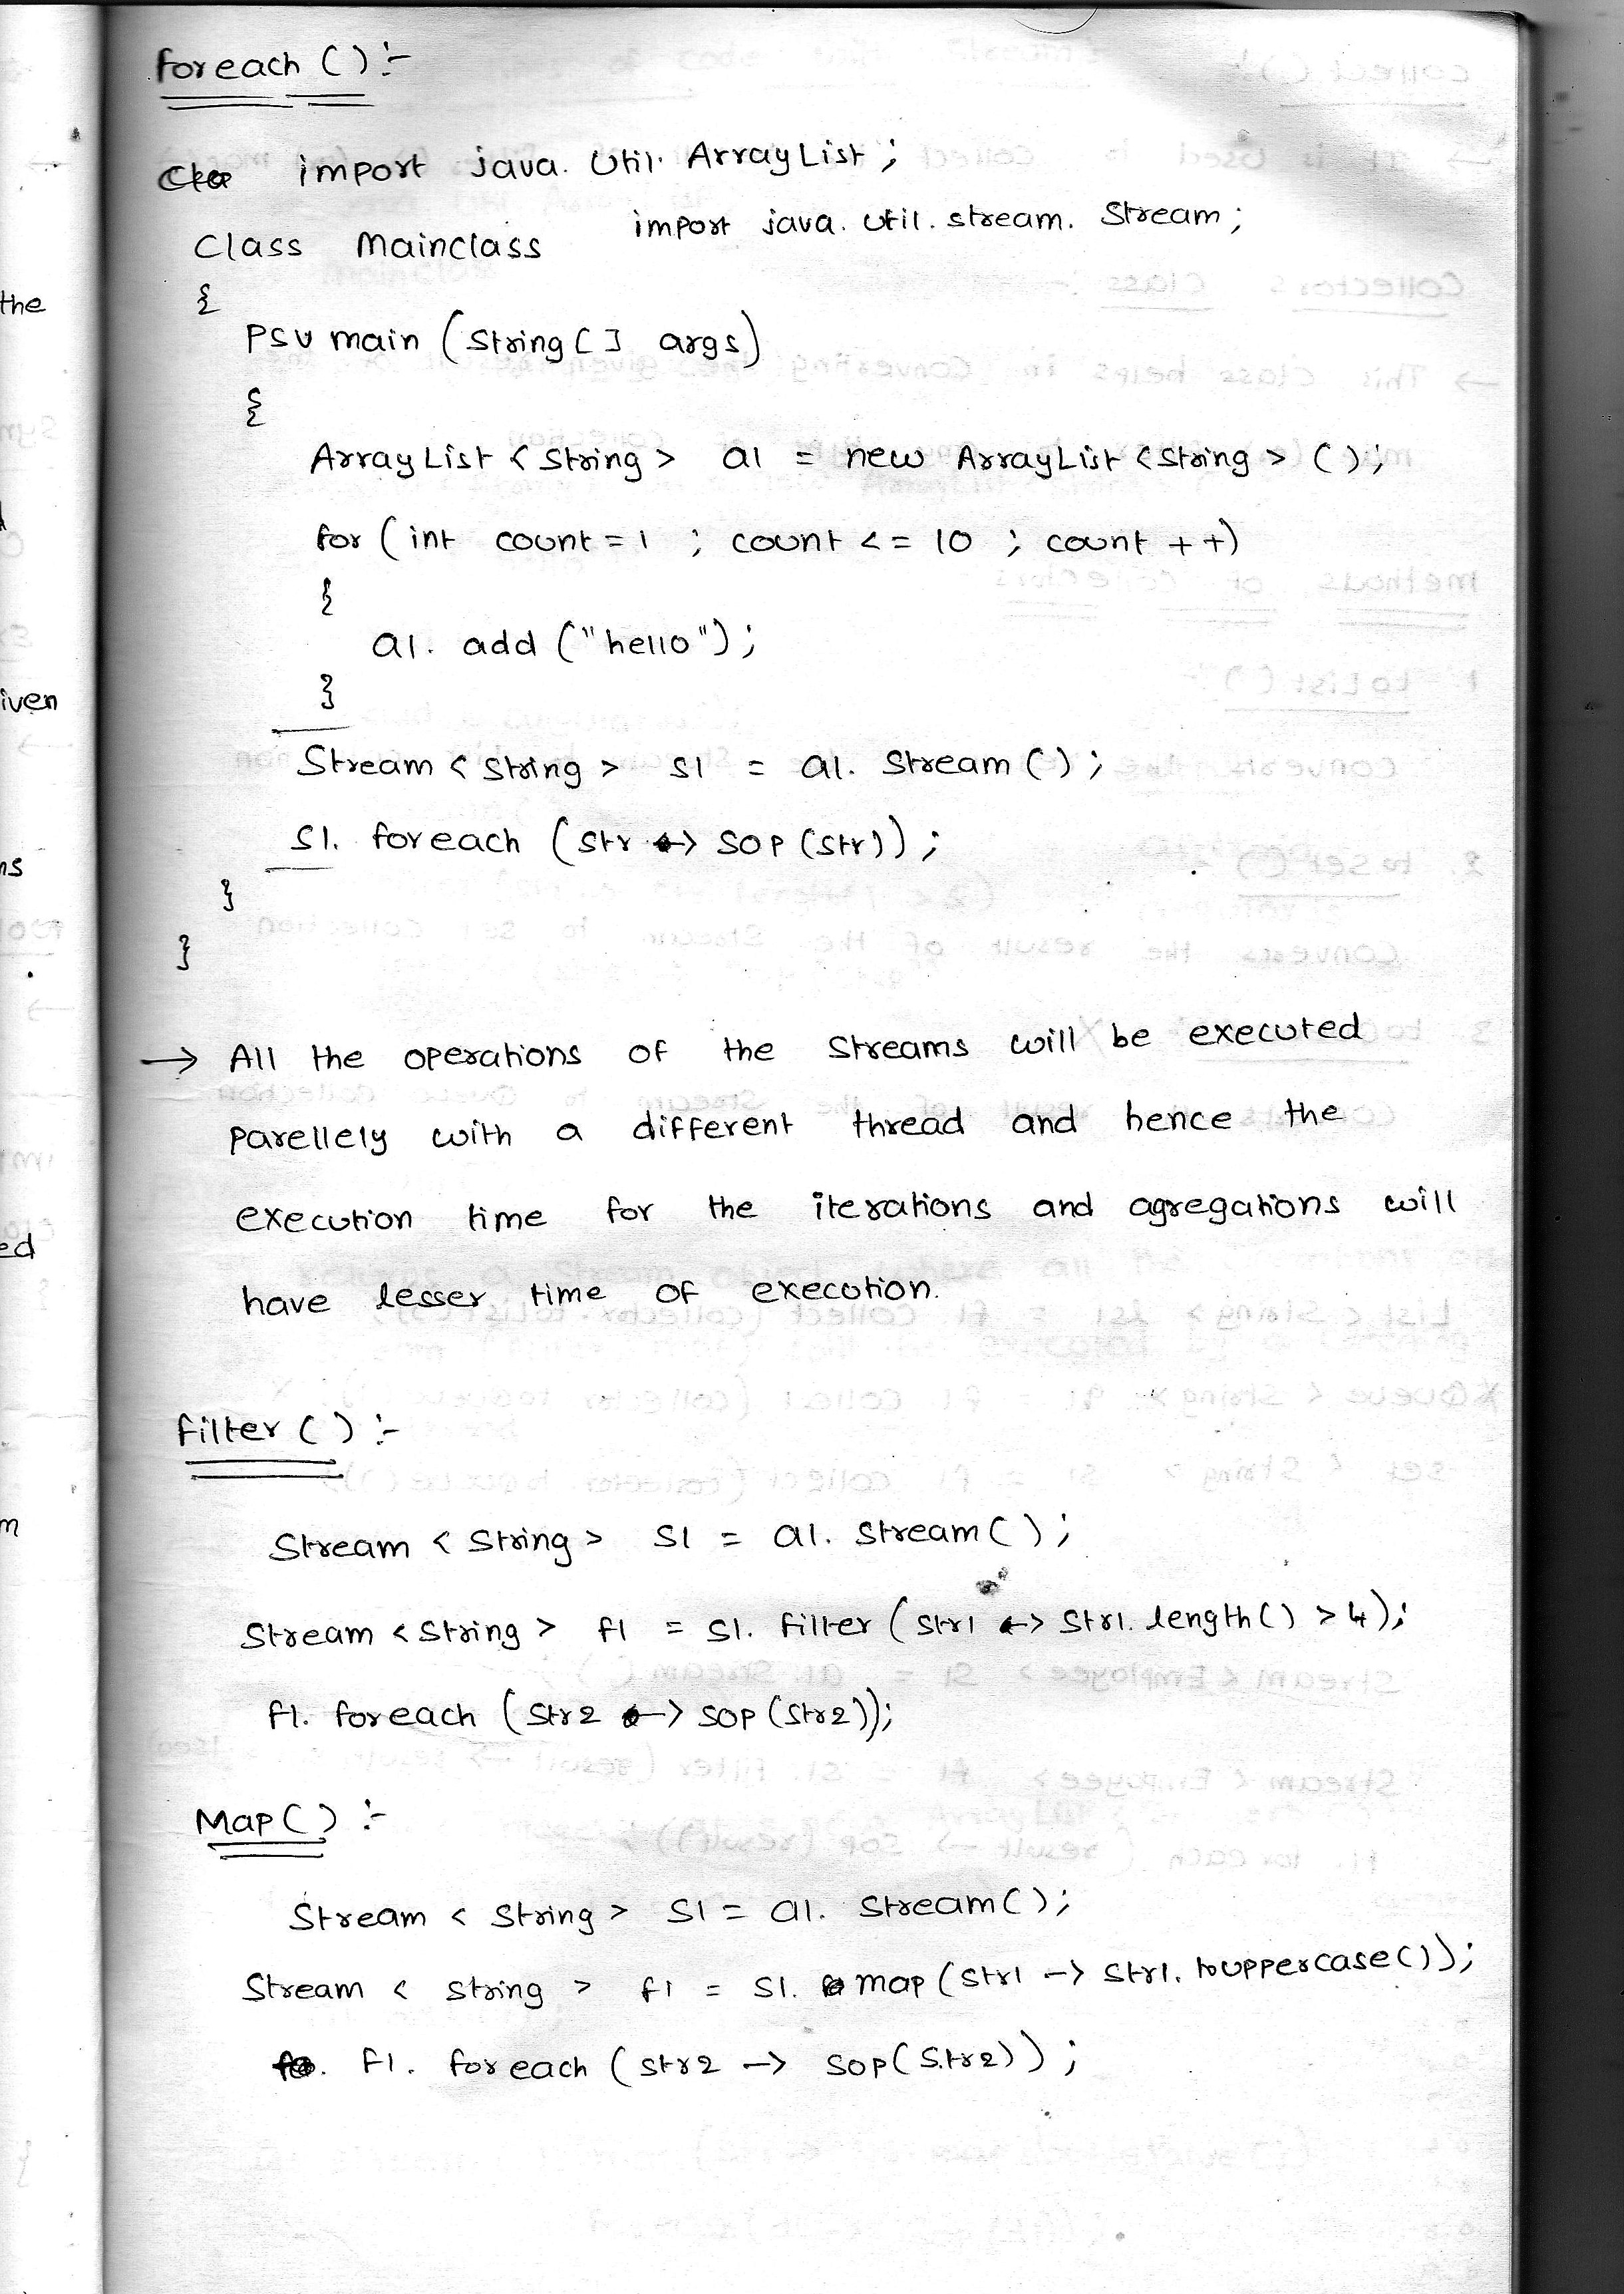 foreach () :-
import java. Util. ArrayList ;
import java. util. stream. Stream ;
Class Mainclass
{
PSV main (String [] args)
{
ArrayList < String > al = new ArrayList < String > () ;
for ( int count = 1 ; count <= 10 ; count ++)
{
al. add ("hello") ;
}
Stream < String > S1 = al. Stream () ;
S1. foreach (Str -> SOP (Str)) ;
}
}
→ All the operations of the Streams will be executed
parellely with a different thread and hence the
execution time for the iterations and agregations will
have lesser time of execution.
filter () :-
Stream < String > S1 = al. Stream () ;
Stream < String > f1 = S1. filter (Str1 -> Str1. length () > 4) ;
f1. foreach (Str2 -> SOP (Str2)) ;
Map () :-
Stream < String > S1 = al. Stream () ;
Stream < String > f1 = S1. map (Str1 -> Str1. touppercase ()) ;
f1. foreach (Str2 -> SOP (Str2)) ;
the
iven
ns
ed
m